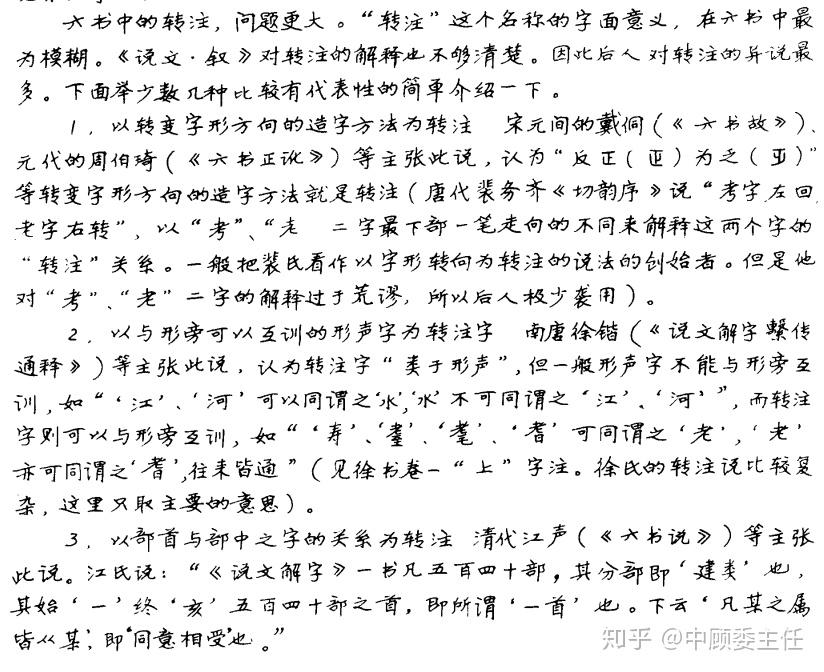 六书中的转注，问题更大。“转注”这个名称的字面意义，在六书中最
为模糊。《说文·叙》对转注的解释也不够清楚。因此后人对转注的异说最
多。下面举少数几种比较有代表性的简单介绍一下。
1，以转变字形方向的造字方法为转注 宋元间的戴侗（《六书故》）、
元代的周伯琦（《六书正讹》）等主张此说，认为“反正（𤴓）为乏（𠂜）”
等转变字形方向的造字方法就是转注（唐代裴务齐《切韵序》说“考字左回，
老字右转”，以“考”、“老 二字最下部一笔走向的不同来解释这两个字的
“转注”关系。一般把裴氏看作以字形转向为转注的说法的创始者。但是他
对“考”、“老”二字的解释过于荒谬，所以后人极少袭用）。
2，以与形旁可以互训的形声字为转注字 南唐徐锴（《说文解字繫传
通释》）等主张此说，认为转注字“类于形声”，但一般形声字不能与形旁互
训，如“‘江’、‘河’可以同谓之‘水’，‘水’不可同谓之‘江’、‘河’”，而转注
字则可以与形旁互训，如“‘寿’、‘耋’、‘耄’、‘耆’可同谓之‘老’，‘老’
亦可同谓之‘耆’，往来皆通”（见徐书卷一“上”字注。徐氏的转注说比较复
杂，这里只取主要的意思）。
3，以部首与部中之字的关系为转注 清代江声（《六书说》）等主张
此说。江氏说：“《说文解字》一书凡五百四十部，其分部即‘建类’也，
其始‘一’终‘亥’五百四十部之首，即所谓‘一首’也。下云‘凡某之属
皆从某’，即‘同意相受’也。”
知乎 @中顾委主任